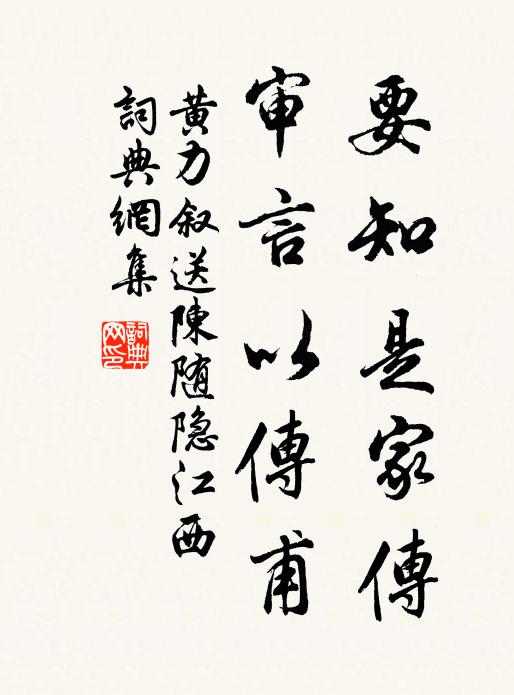 要知是家傳
审言以傳甫
黄力叙送陳随隐江西
詞典網集
詞典網印